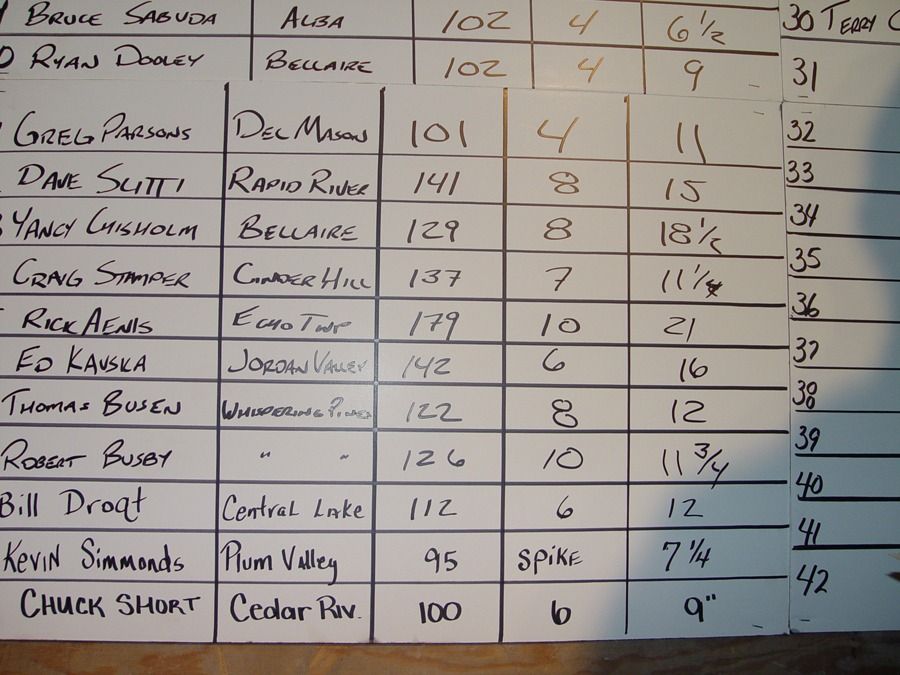 Bruce Sabuda Alba 102 4 6 1/2 30 Terry
Ryan Dooley Bellaire 102 4 9 31
Greg Parsons Del Mason 101 4 11 32
Dave Slitti Rapid River 141 8 15 33
Yancy Chisholm Bellaire 129 8 18 1/2 34
Craig Stamper Cinder Hill 137 7 11 1/4 35
Rick Aenis Echo Twp 179 10 21 36
Ed Kavska Jordan Valley 142 6 16 37
Thomas Busen Whispering Pines 122 8 12 38
Robert Busby " " 126 10 11 3/4 39
Bill Droqt Central Lake 112 6 12 40
Kevin Simmonds Plum Valley 95 Spike 7 1/4 41
Chuck Short Cedar Riv. 100 6 9" 42